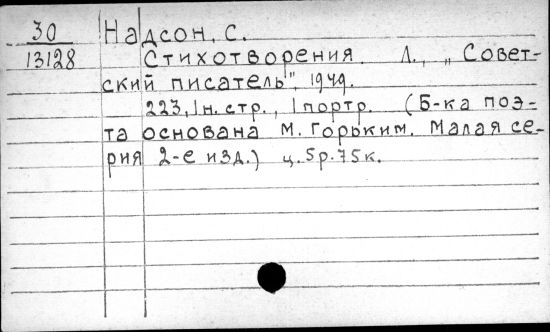 30 Надсон, С.
13128 Стихотворения. Л., „Совет-
ский писатель", 1949.
223, 1н. стр., 1 портр. (Б-ка поэ-
та основана М. Горьким. Малая се-
рия 2-е изд.) ц. 5р. 75к.